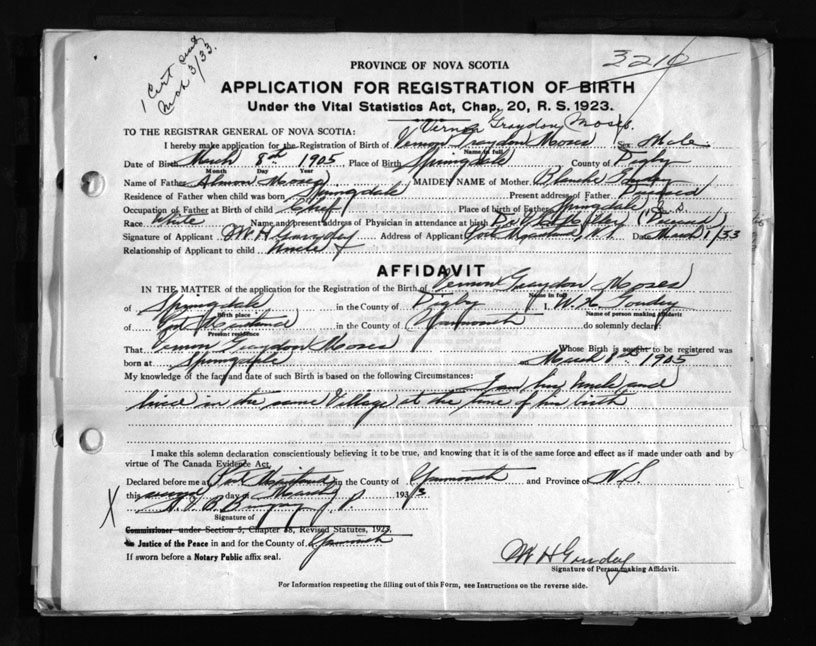 1 Cert sent
Mch 3/33.
PROVINCE OF NOVA SCOTIA
3210
APPLICATION FOR REGISTRATION OF BIRTH
Under the Vital Statistics Act, Chap. 20, R. S. 1923.
Vernon Graydon Moses.
TO THE REGISTRAR GENERAL OF NOVA SCOTIA:
I hereby make application for the Registration of Birth of Vernon Graydon Moses Sex Male.
Name in full
Date of Birth March 8th 1905 Place of Birth Springdale County of Digby
Month Day Year
Name of Father Moses MAIDEN NAME of Mother Blanche Goudey
Residence of Father when child was born Springdale Present address of Father Deceased
Occupation of Father at Birth of child Chef Place of birth of Father Springdale N. S.
Race White Name and present address of Physician in attendance at birth Dr. (Deceased)
Signature of Applicant W H Goudey Address of Applicant Port Maitland, N.S. Date March 1/33
Relationship of Applicant to child Uncle
AFFIDAVIT
IN THE MATTER of the application for the Registration of the Birth of Vernon Graydon Moses
Name in full
of Springdale in the County of Digby I, W. H. Goudey
Birth place Name of person making affidavit
of Port Maitland in the County of Yarmouth do solemnly declare
Present residence
That Vernon Graydon Moses Whose Birth is sought to be registered was
born at Springdale March 8th 1905
My knowledge of the fact and date of such Birth is based on the following Circumstances:
I am his uncle and
lived in the same Village at the time of his birth
I make this solemn declaration conscientiously believing it to be true, and knowing that it is of the same force and effect as if made under oath and by
virtue of The Canada Evidence Act.
Declared before me at Port Maitland in the County of Yarmouth and Province of N. S.
this day of March 1933
J. P.
Signature of
X
Commissioner under Section 5, Chapter 38, Revised Statutes, 1923.
Justice of the Peace in and for the County of Yarmouth
If sworn before a Notary Public affix seal.
W H Goudey
Signature of Person making Affidavit.
For Information respecting the filling out of this Form, see Instructions on the reverse side.